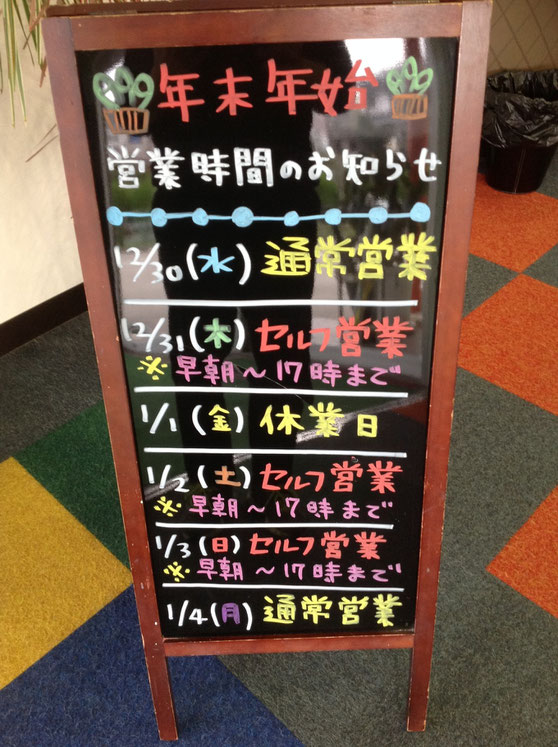 年末年始
営業時間のお知らせ
12/30(水) 通常営業
12/31(木) セルフ営業
※早朝～17時まで
1/1(金) 休業日
1/2(土) セルフ営業
※早朝～17時まで
1/3(日) セルフ営業
※早朝～17時まで
1/4(月) 通常営業